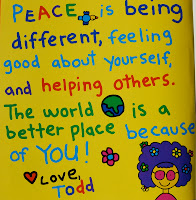 PEACE is being
different, feeling
good about yourself,
and helping others.
The world is a
better place because
of YOU!
Love,
Todd